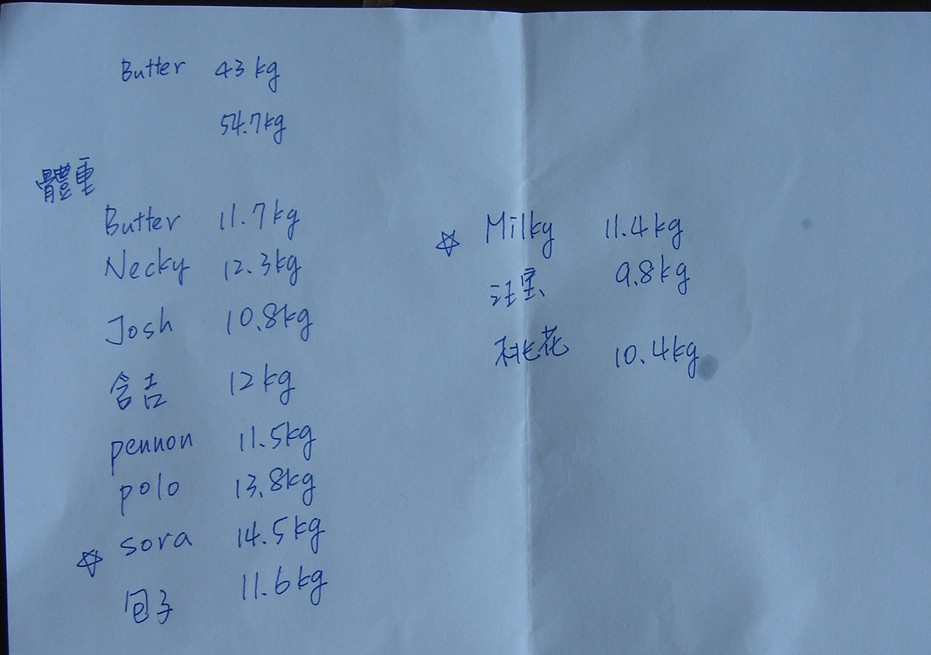 Butter 43kg
54.7kg
體重
Butter 11.7kg
Necky 12.3kg
Josh 10.8kg
含吉 12kg
pennon 11.5kg
polo 13.8kg
☆ sora 14.5kg
包子 11.6kg
☆ Milky 11.4kg
9.8kg
桃花 10.4kg